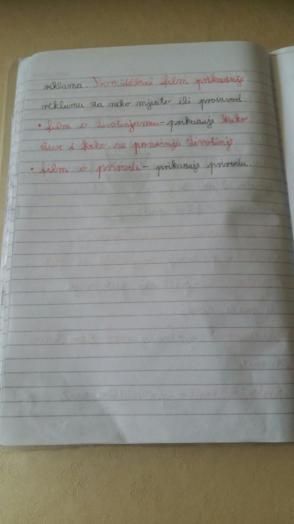 reklama. Promidžbeni film prikazuje
reklamu za neko mjesto ili proizvod
• film o životinjama - prikazuje kako
žive i kako se ponašaju životinje
• film o prirodi - prikazuje prirodu.